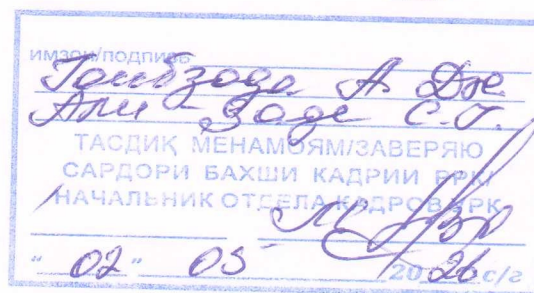 ИМЗОИ/ПОДПИСЬ
Гоибзода А. Дж
Али Заде С.Г.
ТАСДИҚ МЕНАМОЯМ/ЗАВЕРЯЮ
САРДОРИ БАХШИ КАДРИИ РРК/
НАЧАЛЬНИК ОТДЕЛА КАДРОВ УРК
"02" 05 2026 с/г